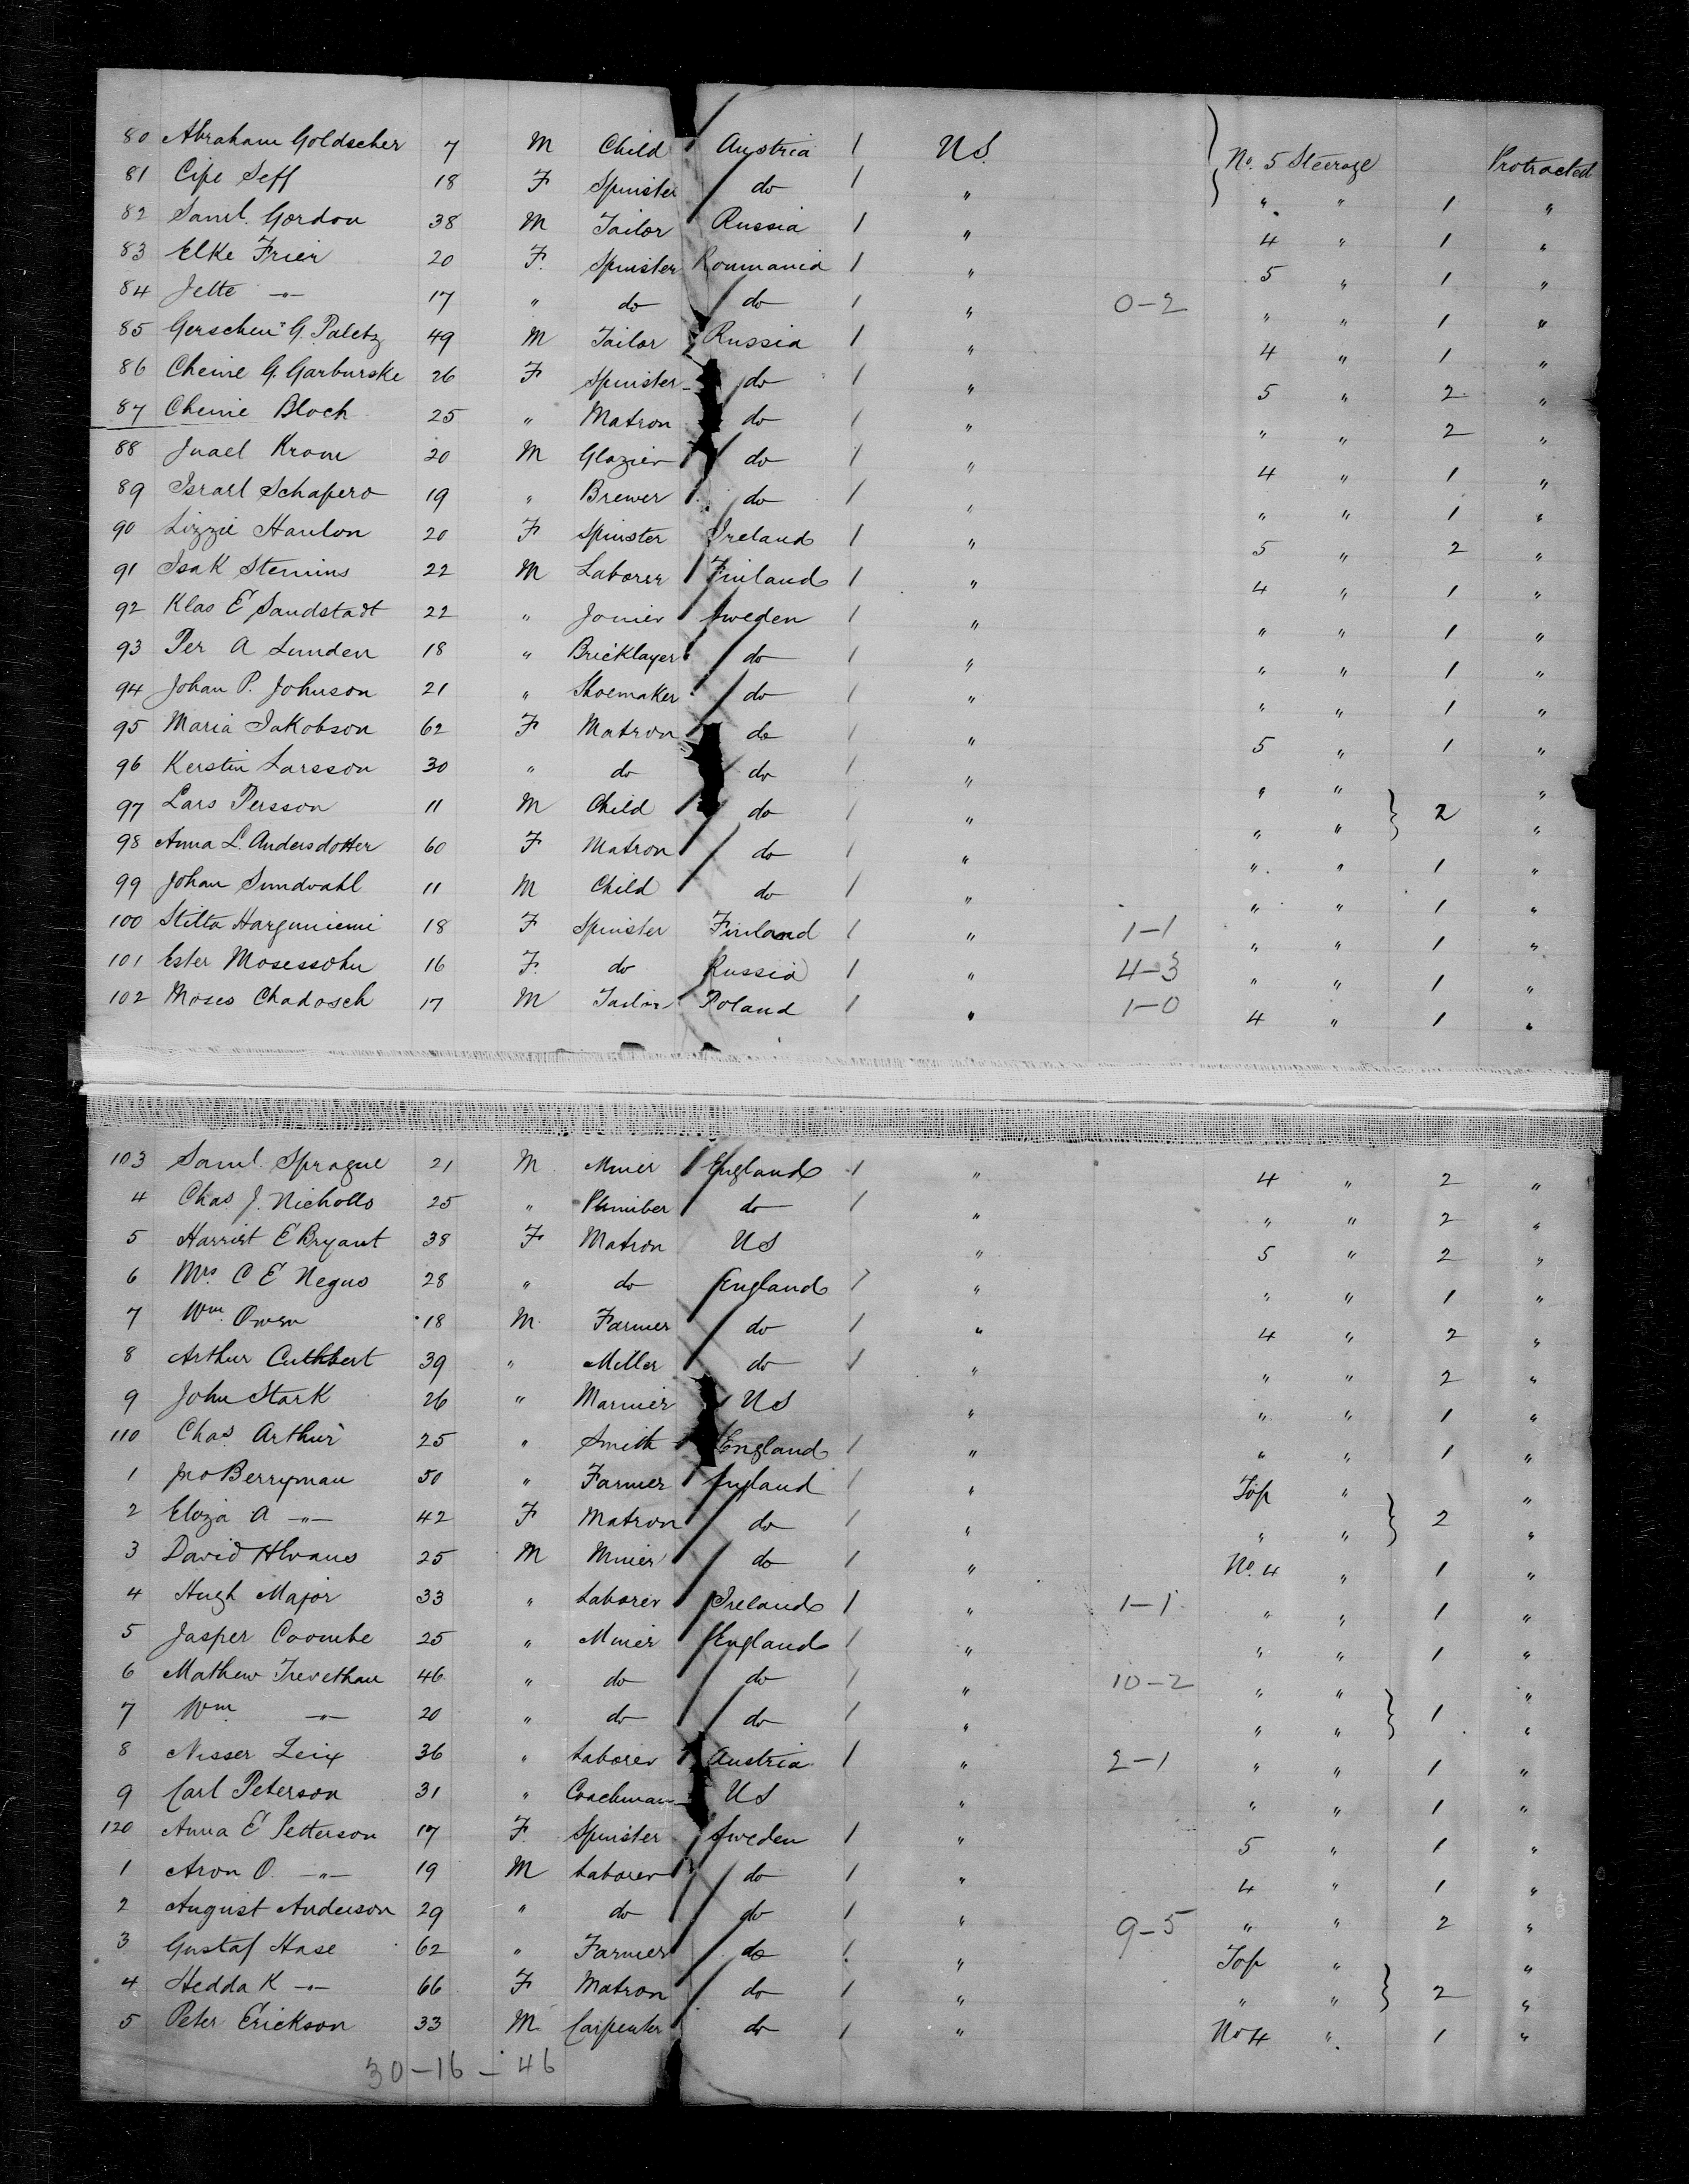 80 Abraham Goldscher 7 M Child Austria / U.S. No. 5 Steerage Protracted
81 Cipe Seff 18 F Spinster do / " " " 1 "
82 Saml. Gordon 38 M Tailor Russia / " 4 " 1 "
83 Elke Frier 20 F. Spinster Roumania / " 5 " 1 "
84 Jette -"- 17 " do do / " 0-2 " " 1 "
85 Gerschen G. Paletz 49 M Tailor Russia / " 4 " 1 "
86 Cheine G. Garburske 26 F Spinster do / " 5 " 2 "
87 Chenie Bloch 25 " Matron do / " " " 2 "
88 Krom 20 M Glazier do / " 4 " 1 "
89 Israel Schapero 19 " Brewer do / " " " 1 "
90 Lizzie Hanlon 20 F Spinster Ireland / " 5 " 2 "
91 Isak Stenins 22 M Laborer Finland / " 4 " 1 "
92 Klas E Sandstadt 22 " Joiner Sweden / " " " 1 "
93 Per A Lunden 18 " Bricklayer do / " " " 1 "
94 Johan P. Johnson 21 " Shoemaker do / " " " 1 "
95 Maria Jakobson 62 F Matron do / " 5 " 1 "
96 Kerstin Larsson 30 " do do / " " " "
97 Lars Persson 11 M Child do / " " " } 2 "
98 Anna L. Andersdotter 60 F Matron do / " " " 1 "
99 Johan Sundvahl 11 M Child do / " " " 1 "
100 Stilta Harguniemi 18 F Spinster Finland / " 1-1 " " 1 "
101 Ester Mosessohn 16 F. do Russia / " 4-3 " " 1 "
102 Moses Chadosch 17 M Tailor Poland / " 1-0 4 " 1 "
103 Saml. Sprague 21 M Miner England / " 4 " 2 "
4 Chas J. Nicholls 25 " Plumber do / " " " 2 "
5 Harriet E Bryant 38 F Matron US " 5 " 2 "
6 Mrs. C E Negus 28 " do England / " " " 1 "
7 Wm. Owen 18 M. Farmer do / " 4 " 2 "
8 Arthur Cuthbert 39 " Miller do / " " " 2 "
9 John Stark 26 " Mariner US " " " 1 "
110 Chas Arthur 25 " Smith England / " " " 1 "
1 Jno Berryman 50 " Farmer England / " Top " "
2 Eliza A -"- 42 F Matron do / " " " } 2 "
3 David 25 M Miner do / " No. 4 " 1 "
4 Hugh Major 33 " Laborer Ireland / " 1-1 " " 1 "
5 Jasper Coombe 25 " Miner England / " " " 1 "
6 Mathew Trevethan 46 " do do / " 10-2 " " "
7 Wm -"- 20 " do do / " " " } 1 "
8 Nisser Leix 36 " Laborer Austria / " 2-1 " " 1 "
9 Carl Peterson 31 " Coachman US " " " 1 "
120 Anna E Petterson 17 F. Spinster Sweden / " 5 " 1 "
1 Aron O. -"- 19 M Laborer do / " 4 " 1 "
2 August Anderson 29 " do do / " 9-5 " " 2 "
3 Gustaf Hase 62 " Farmer do / " Top " "
4 Hedda K -"- 66 F Matron do / " " " } 2 "
5 Peter Erickson 33 M Carpenter do / " No 4 " 1 "
30-16-46